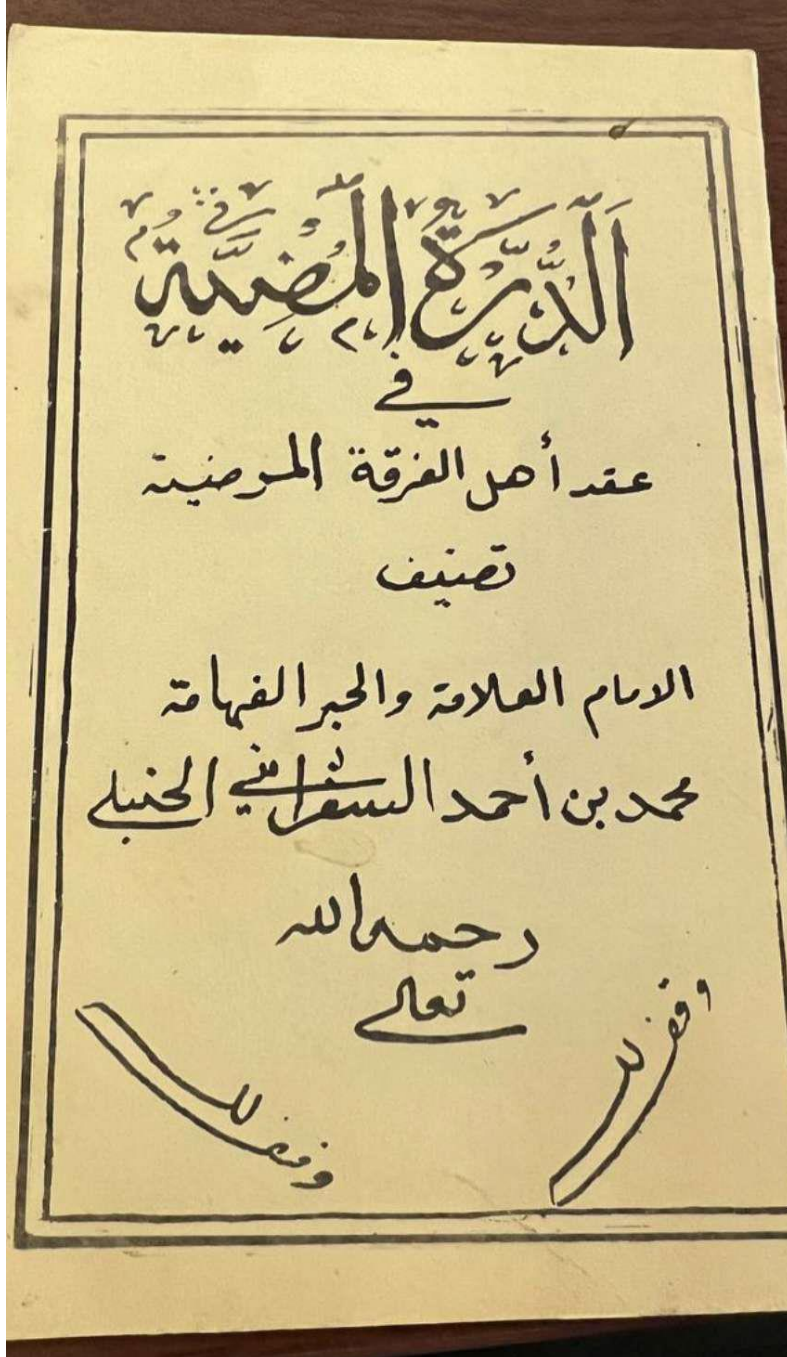 اَلدُّرَّةُ الْمُضِيَّة
في
عقد أهل الفرقة المرضية
تصنيف
الامام العلامة والحبر الفهامة
محمد بن أحمد السفاريني الحنبلي
رحمه الله
تعالى
وقف لله
وقف لله